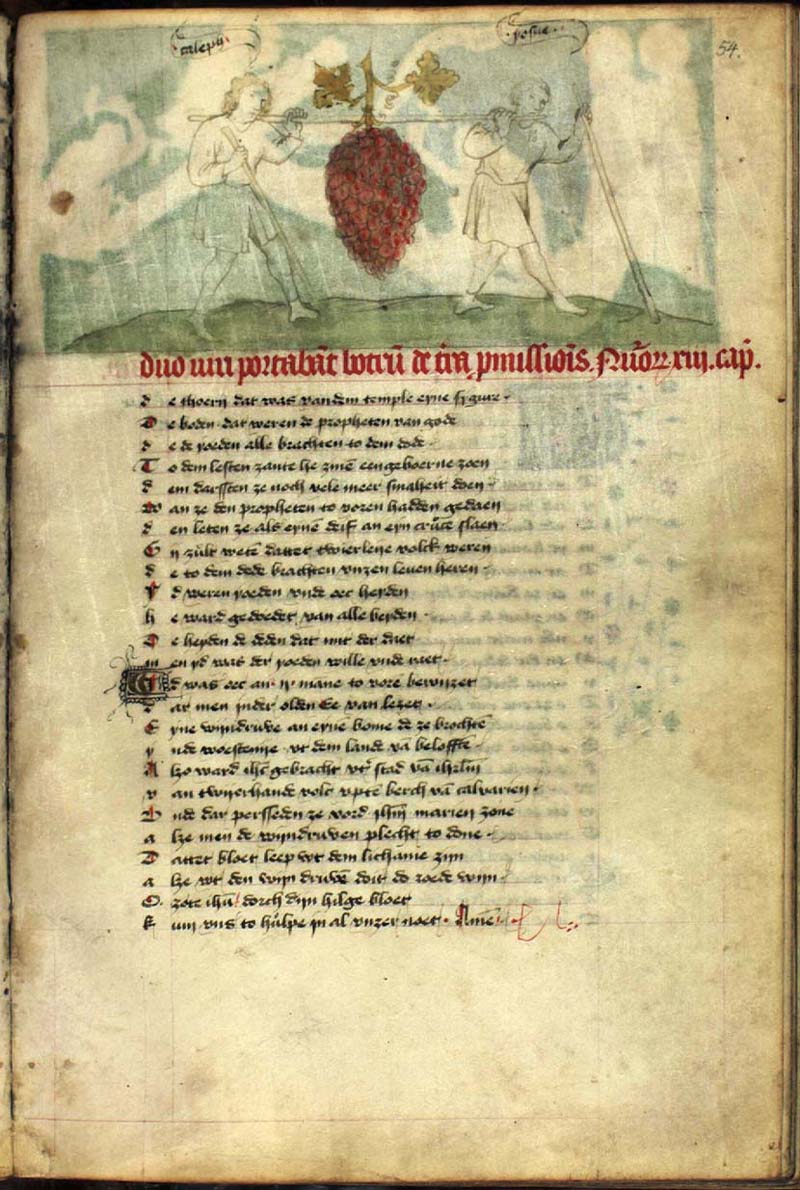 caleph
josue
54.
duo uiri portabāt botrū de t̄ra p̄missiōis. Nūor xiij. cap̄.
de thoern dat was van dem temple eyne fygure
De boden dat weren de propheten van gode
de de joeden alle brachten to dem dode
To dem lesten zante he zinē eengeboerne zoen
dem darssten ze noch vele meer smaheit doen
Wan ze den propheten to voren hadden gedaen
den leten ze als eynē deif an eyn crūce slaen
Gij zult wetē dattet twierleye volck weren
de to dem dode brachten vnzen leven heren
Jd weren joeden vnde oec heyden
he ward gedoedet van alle beyden
De heyden de deden dat mit der daet
men jd was der joeden wille vnde raet
Jd was oec an ij mane to vore bewyzet
Dar men in der olden Ee van lezet
Eyne wyndruve an eynē bome de ze brochtē
ynde woestenye vt dem lande vā beloffte
Alzo ward ihē gebracht vt̄ stad vā ihrlm̄
van twyerhande volc vptē berch vā calvarien
Unde dar persseden ze vord ihm̄ marien zone
alze men de wyndruven plecht to done
Dattet bloet leep vt dem lichame zyn
alze vt den wyn druvē doit de roede wyn
O zote ihū dorch dyn hilge bloet
kum vns to hulpe in al vnzer noet. Amē